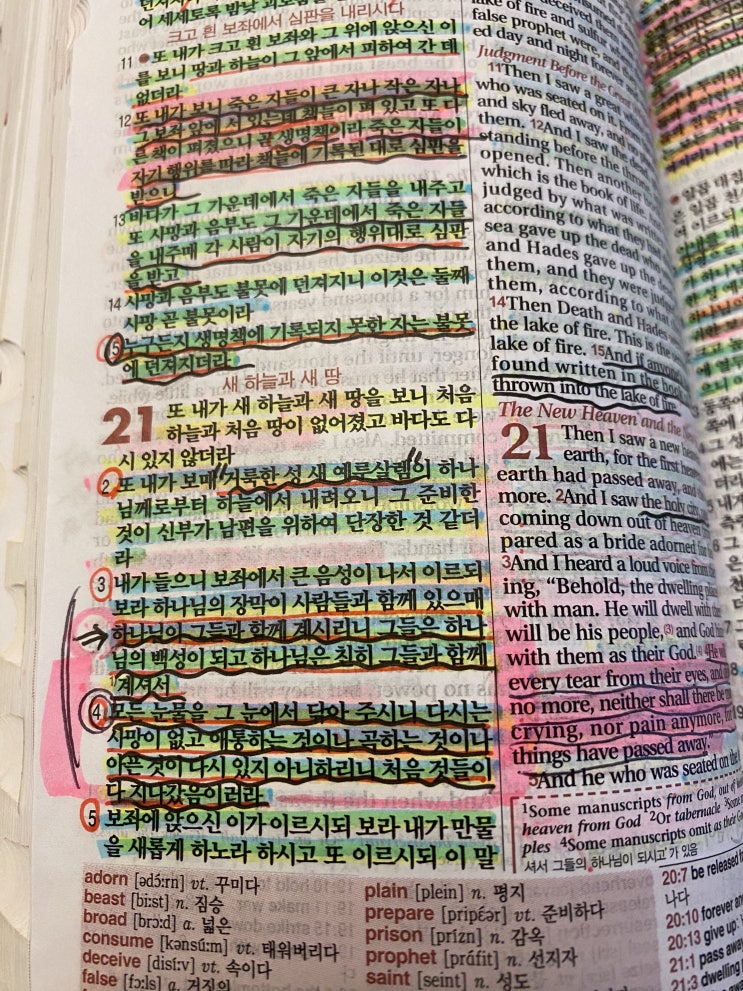 크고 흰 보좌에서 심판을 내리시다
11 ●또 내가 크고 흰 보좌와 그 위에 앉으신 이
를 보니 땅과 하늘이 그 앞에서 피하여 간 데
없더라
12 또 내가 보니 죽은 자들이 큰 자나 작은 자나
그 보좌 앞에 서 있는데 책들이 펴 있고 또 다
른 책이 펴졌으니 곧 생명책이라 죽은 자들이
자기 행위를 따라 책들에 기록된 대로 심판을
받으니
13 바다가 그 가운데에서 죽은 자들을 내주고
또 사망과 음부도 그 가운데에서 죽은 자들
을 내주매 각 사람이 자기의 행위대로 심판
을 받고
14 사망과 음부도 불못에 던져지니 이것은 둘째
사망 곧 불못이라
15 누구든지 생명책에 기록되지 못한 자는 불못
에 던져지더라
새 하늘과 새 땅
21 또 내가 새 하늘과 새 땅을 보니 처음
하늘과 처음 땅이 없어졌고 바다도 다
시 있지 않더라
2 또 내가 보매 "거룩한 성 새 예루살렘"이 하나
님께로부터 하늘에서 내려오니 그 준비한
것이 신부가 남편을 위하여 단장한 것 같더
라
3 내가 들으니 보좌에서 큰 음성이 나서 이르되
보라 하나님의 장막이 사람들과 함께 있으매
→ 하나님이 그들과 함께 계시리니 그들은 하나
님의 백성이 되고 하나님은 친히 그들과 함께
1)계셔서
4 모든 눈물을 그 눈에서 닦아 주시니 다시는
사망이 없고 애통하는 것이나 곡하는 것이나
아픈 것이 다시 있지 아니하리니 처음 것들이
다 지나갔음이러라
5 보좌에 앉으신 이가 이르시되 보라 내가 만물
을 새롭게 하노라 하시고 또 이르시되 이 말
lake of fire and sulfur
false prophet were, and
ed day and night forever
Judgment Before the Great
11Then I saw a great
who was seated on it. From
and sky fled away, and no
them. 12And I saw the dead
standing before the throne
opened. Then another
which is the book of life.
judged by what was written
according to what they had
sea gave up the dead who
and Hades gave up the dead
them, and they were judged
them, according to what
14Then Death and Hades
the lake of fire. This is the
lake of fire. 15And if anyone
found written in the book
thrown into the lake of fire.
The New Heaven and the
21 Then I saw a new heaven
earth, for the first heaven
earth had passed away, and
more. 2And I saw the holy city,
coming down out of heaven
pared as a bride adorned for
3And I heard a loud voice from
ing, "Behold, the dwelling place
with man. He will dwell with them
will be his people,(3) and God
with them as their God.(4) 4He will
every tear from their eyes, and
no more, neither shall there be
crying, nor pain anymore, for
things have passed away."
5And he who was seated on the
1Some manuscripts from God, out of
heaven from God 2Or tabernacle 3Some
ples 4Some manuscripts omit as their God
셔서 그들의 하나님이 되시고'가 있음
adorn [ədɔ́ːrn] vt. 꾸미다
beast [biːst] n. 짐승
broad [brɔːd] a. 넓은
consume [kənsúːm] vt. 태워버리다
deceive [disíːv] vt. 속이다
false [fɔːls] a. 거짓의
plain [plein] n. 평지
prepare [pripɛ́ər] vt. 준비하다
prison [prízn] n. 감옥
prophet [práfit] n. 선지자
saint [seint] n. 성도
20:7 be released
나다
20:10 forever
20:13 give up:
21:1 pass away
21:3 dwelling